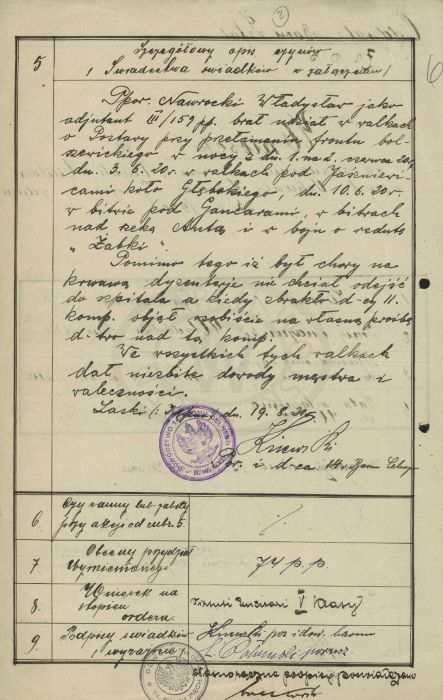 2
5 Szczegółowy opis czynów
(Świadectwa świadków w załączeniu)
Ppor. Nawrocki Władysław jako
adjutant III/159 pp. brał udział w walkach
o Postawy przy przełamaniu frontu bol-
szewickiego w nocy z dn. 1. na 2. czerwca 20 r.
dn. 3.6.20r. w walkach pod Jaśniewi-
cami koło Głębokiego, dn. 10.6.20r.
w bitwie pod Gancarami, w bitwach
nad rzeką Autą i w boju o redutę
"Żabki"
Pomimo tego iż był chory na
krwawą dyzenterję nie chciał odejść
do szpitala a kiedy zbrakło d-cy 11.
komp. objął osobiście na własną prośbę
d-two nad tą komp.
We wszystkich tych walkach
dał niezbite dowody męstwa i
waleczności.
dn. 19.8.
i d-ca
6. Czy ranny lub zabity
przy akcji od rubr. 5. ./.
7 Obecny przydział
Wymienionego 74 p.p.
8. Wniosek na
stopień
orderu. Virtuti Militari V klasy
9. Podpisy świadków
(wyraźne)
por.
własnoręczne podpisy poświadczam